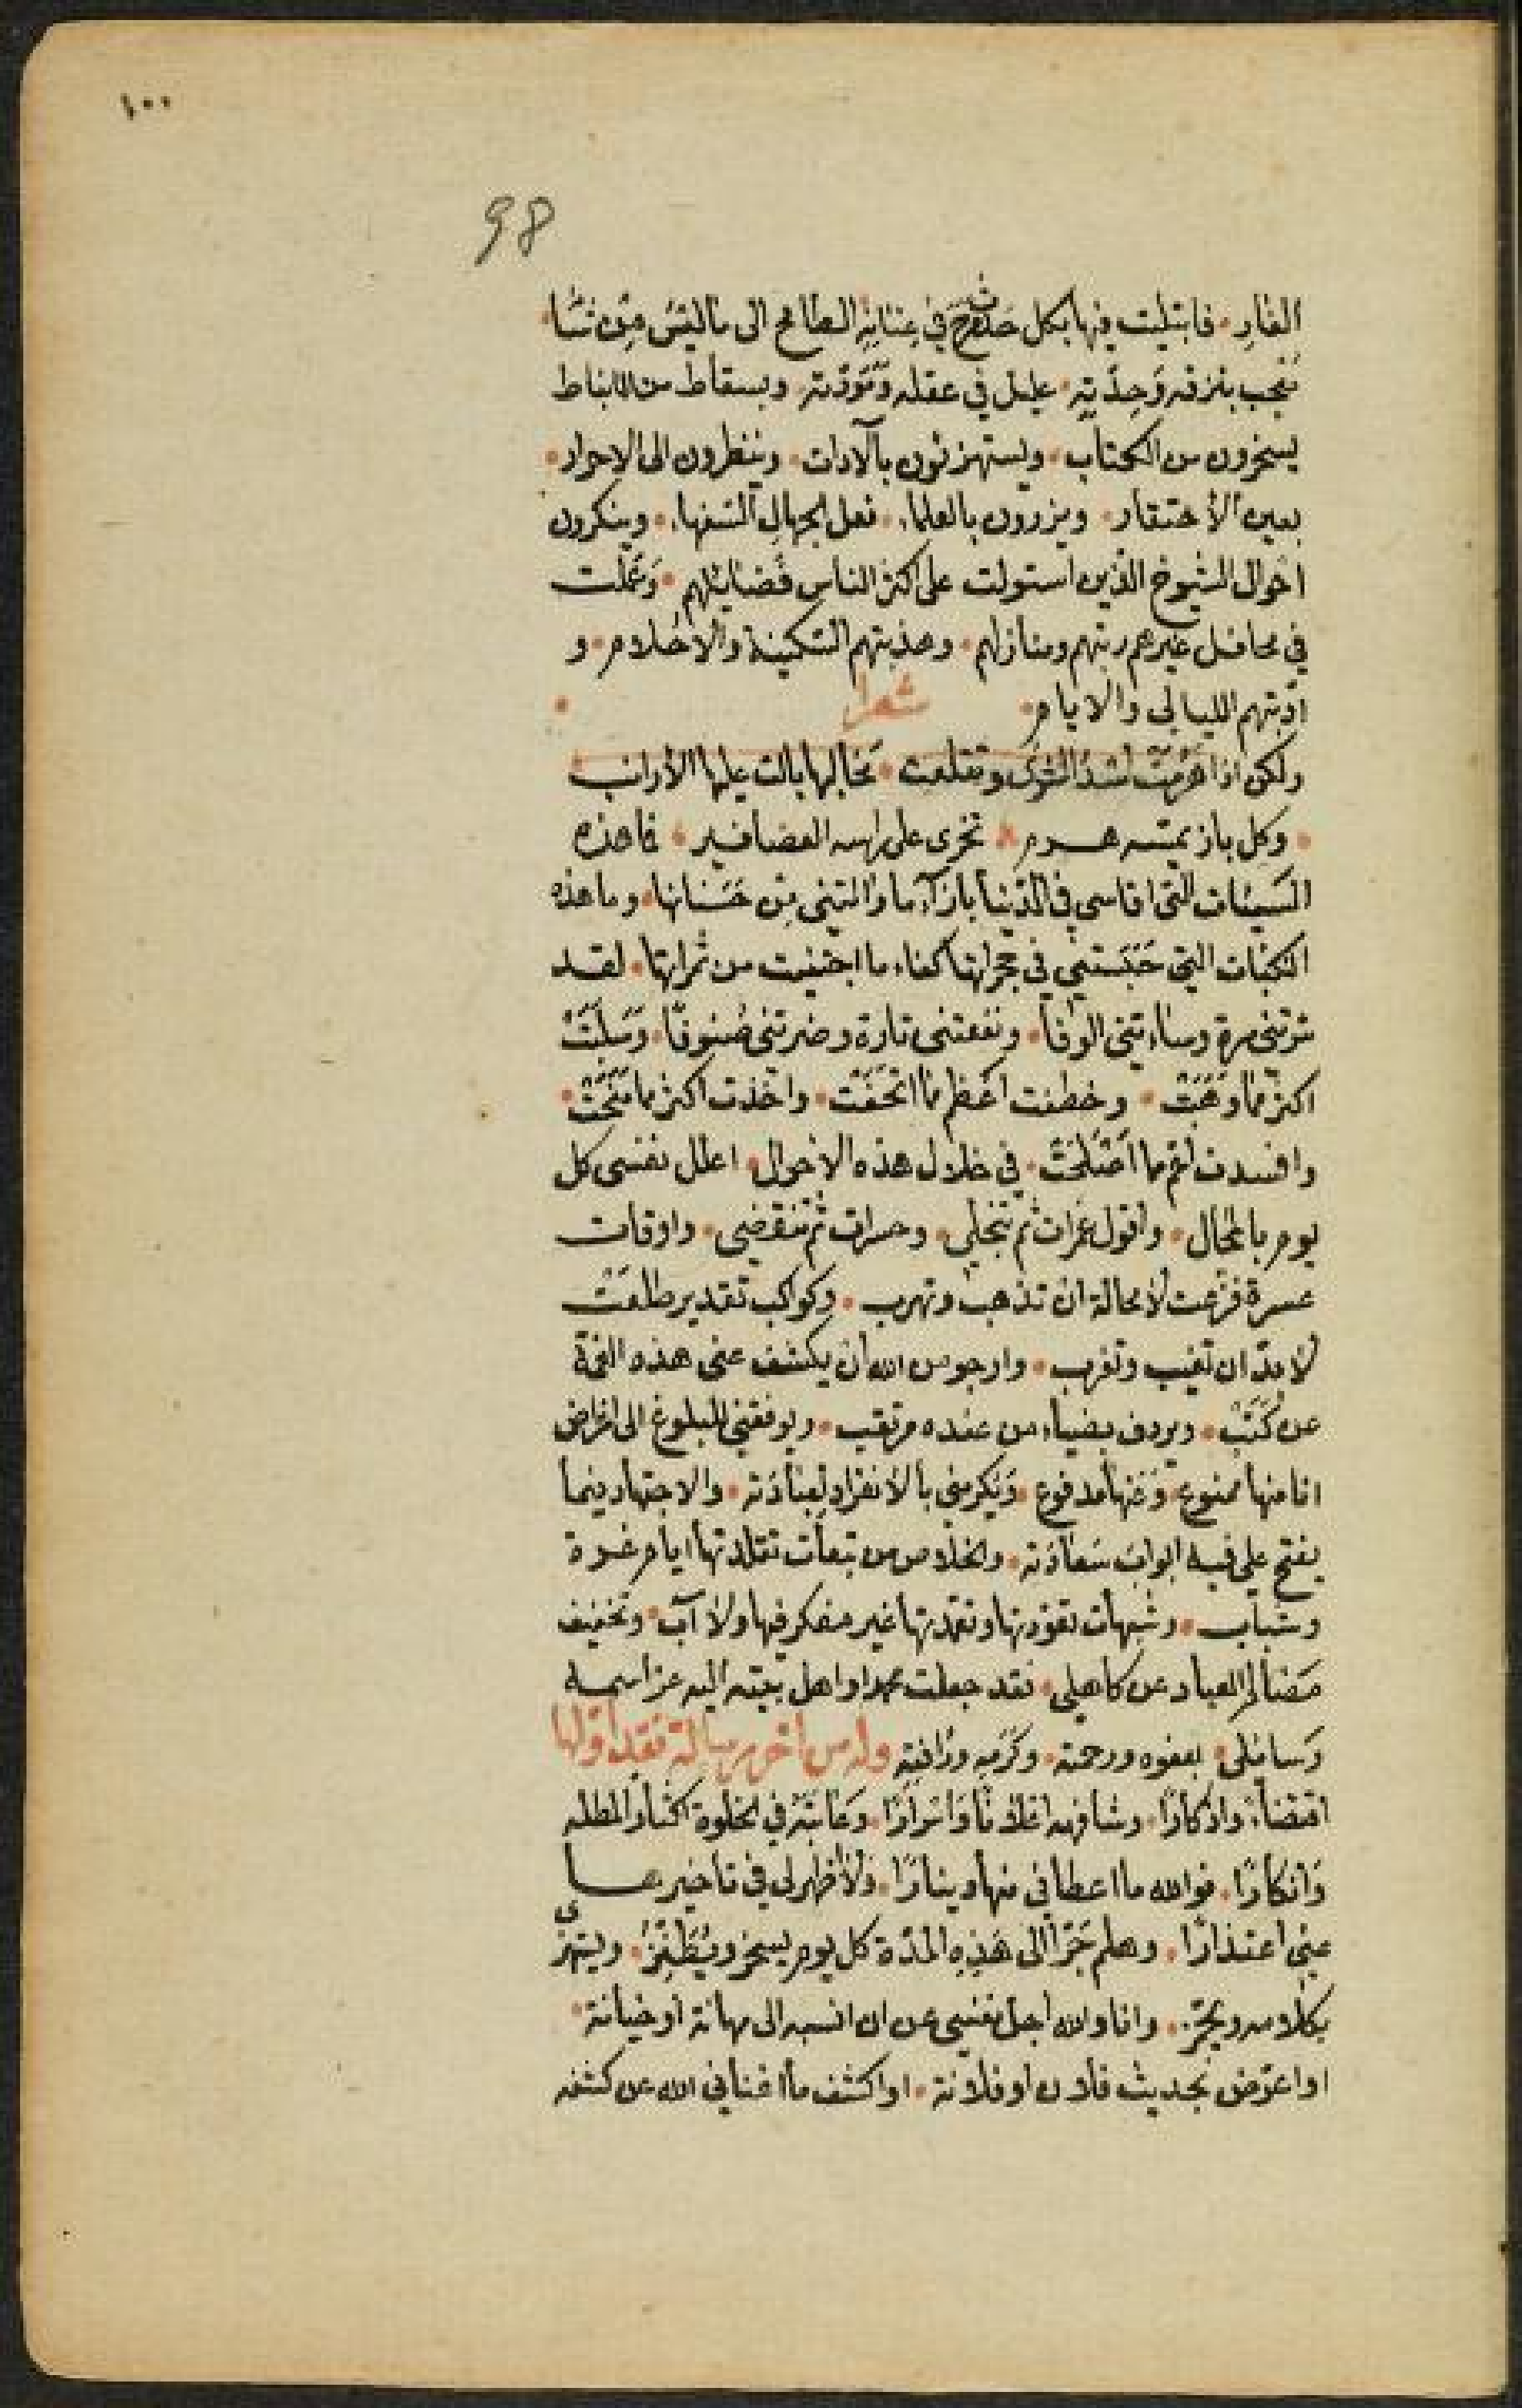 ١٠٠
98
الغار. فابتليت فيها بكل حدث مرح في عنانه الطامح الى ما ليس من شا
معجب بنزقه وحدته. عليل في عقله ومودته. وبسقاط من الانباط
يسخرون من الكتاب. ويستهزئون بالآداب. وينظرون الى الاحرار.
بعين الاحتقار. ويزرون بالعلماء. فعل الجهال السفهاء. وينكرون
احوال الشيوخ الذين استولت على اكثر الناس فضائلهم. وعملت
في محافل غيرهم رتبهم ومنازلهم. وهذبتهم السكينة والاحلام. و
ادبتهم الليالي والايام. شعرا
ولكن اذا هرمت اسد الشرى وتقلعت. مخالبها بالت عليها الأرانب
وكل باز يمسه هرم. تخرى على راسه العصافير. فما هذه
السيئات التي اقاسي في الدنيا بازآء ما واتتني من حسناتها. وما هذه
النكبات التي حبستني في حجراتها كفاء ما اجتنيت من ثمراتها. لقد
سرتني مرة وساءتني الوفا. ونفعتني تارة وضرتني صنوفا. وسلبت
اكثر مما وهبت. وخطفت اعظم مما اتحفت. واخذت اكثر مما منحت.
وافسدت اتم مما اصلحت. في خلال هذه الاحوال. اعلل نفسي كل
يوم بالمحال. واقول غمرات ثم تنجلي. وحسرات ثم تنقضي. واوقات
عسرة لا محالة ان تذهب وتهرب. وكواكب تقدير طلعت
لا بد ان تغيب وتغرب. وارجو من الله ان يكشف عني هذه الغمة
عن كثب. ويردف بضياء من عنده مرتقب. ويوفقني للبلوغ الى اغراض
انا منها ممنوع. وعنها مدفوع. ويكرمني بالانفراد لعبادته. والاجتهاد فيما
يفتح علي فيه ابواب سعادته. والخلاص من تبعات تقلدتها ايام غرة
وشباب. وشبهات تفوهتها وتعمدتها غير مفكر فيها ولا آب. وتخفيف
مظالم العباد عن كاهلي. فقد جعلت محمدا واهل بيته اليه عز اسمه
وسائلي. بعفوه ورحمته. وكرمه ورافته وله من اخرى رسالة فقد اولها
اقتضاء واذكارا. وشافهه اعلانا واسرارا. وعاتبه في الخلوة اكثار المطله
وانكارا. فوالله ما اعطاني منها دينارا. ولا اظهر لي في تاخيرها
عني اعتذارا. وهلم جرا الى هذه المدة كل يوم يسخر ويطنز. ويستهزئ
بكلامه ويتحرز. وانا والله اجل نفسي عن ان انسبه الى مهانة او خيانة.
او اعرض بحديث فلان او فلانة. او اكشف ما اغناني الله عن كشفه